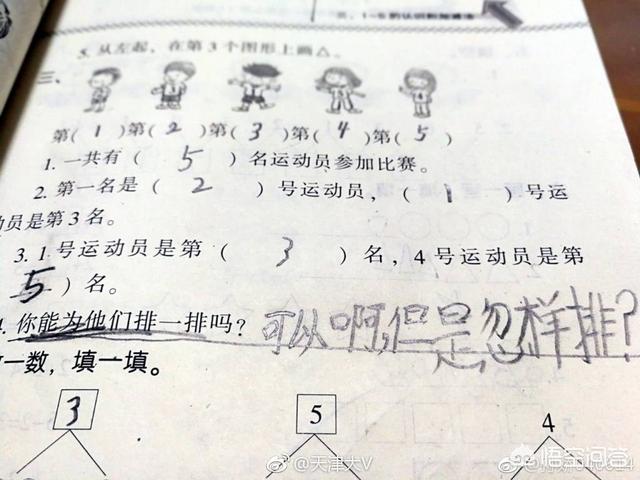 5. 从左起，在第3个图形上画△。
三、
第(1)第(2)第(3)第(4)第(5)
1. 一共有（5）名运动员参加比赛。
2. 第一名是（2）号运动员，（1）号运
动员是第3名。
3. 1号运动员是第（3）名，4号运动员是第
（5）名。
4. 你能为他们排一排吗？可以啊，但是忽样排？
数一数，填一填。
3 5 4
@天津大V
悟空问答